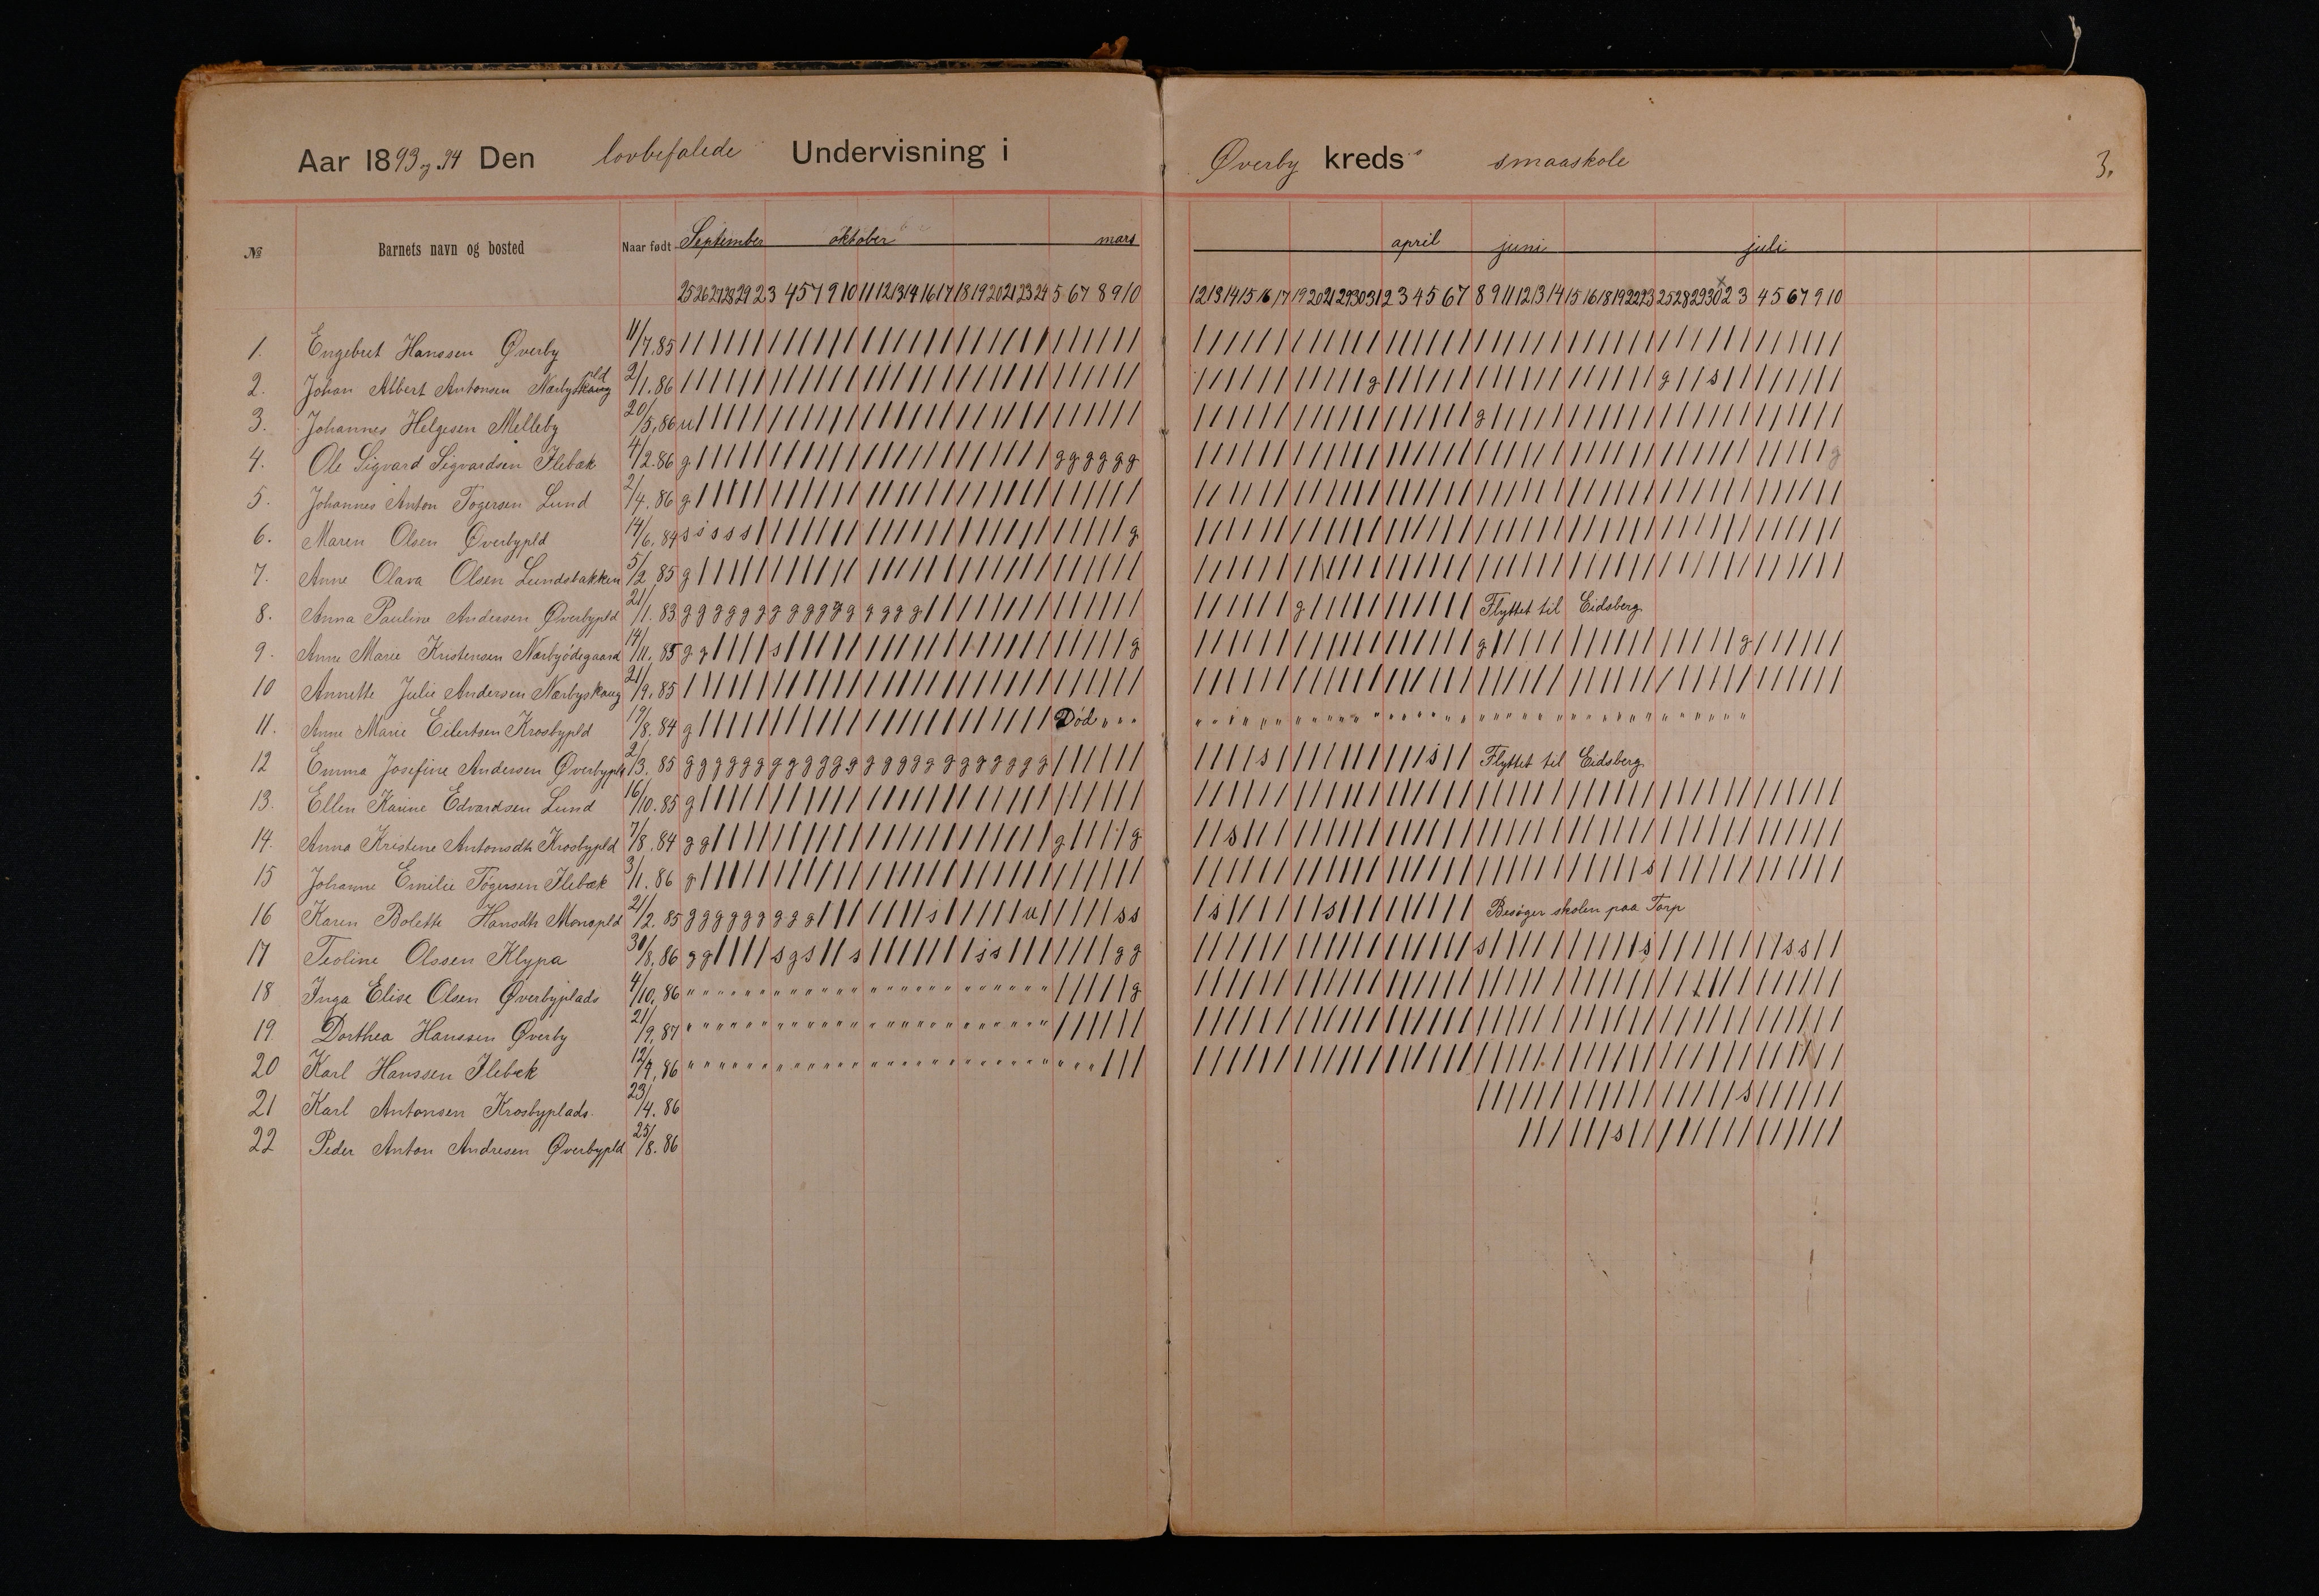 Aar 1893 og 94 Den lovbefalede Undervisning i Øverby kreds smaaskole 3.
№ Barnets navn og bosted Naar født September oktober mars april juni juli
25 26 27 28 29 2 3 4 5 7 9 10 11 12 13 14 16 17 18 19 20 21 23 24 5 6 7 8 9 10 12 13 14 15 16 17 19 20 21 29 30 31 2 3 4 5 6 7 8 9 11 12 13 14 15 16 18 19 22 23 25 28 29 30 2 3 4 5 6 7 9 10
1. Engebret Hanssen Øverby 11/7.85
2. Johan Albert Antonsen Nærbypld 2/1.86 g g s
3. Johannes Helgesen Melleby 20/5.86 u g
4. Ole Sigvard Sigvardsen Ilebæk 4/2.86 g g g g g g g g
5. Johannes Anton Togersen Lund 2/4.86 g
6. Maren Olsen Øverbypld 14/6.84 s s s s s g
7. Anne Olava Olsen Lundsbakken 5/2.85 g
8. Anna Pauline Andersen Øverbypld 21/1.83 g g g g g g g g g g g g g g g g g Flyttet til Eidsberg
9. Anne Marie Kristensen Nærbyødegaard 14/11.85 g g s g g g
10 Annette Julie Andersen Nærbyskaug 21/9.85
11. Anne Marie Eilertsen Krosbypld 19/8.84 g Død " " "
12 Emma Josefine Andersen Øverbypld 2/3.85 g g g g g g g g g g g g g g g g g g g g g g g g s s Flyttet til Eidsberg
13. Ellen Karine Edvardsen Lund 16/10.85 g
14. Anna Kristine Antonsdtr Krosbypld 7/8.84 g g g g s
15 Johanne Emilie Togersen Ilebæk 3/1.86 g s
16 Karen Bolette Hansdtr Monapld 21/2.85 g g g g g g g g g s u s s s s Besøger skolen paa Torp
17 Teoline Olssen Klypa 30/8.86 g g s g s s s s g g s s s s
18 Inga Elise Olsen Øverbyplads 4/10.86 g
19. Dorthea Hanssen Øverby 21/9.87
20 Karl Hanssen Ilebæk 12/4.86
21 Karl Antonsen Krosbyplads. 23/4.86 s
22 Peder Anton Andresen Øverbypld 25/8.86 s